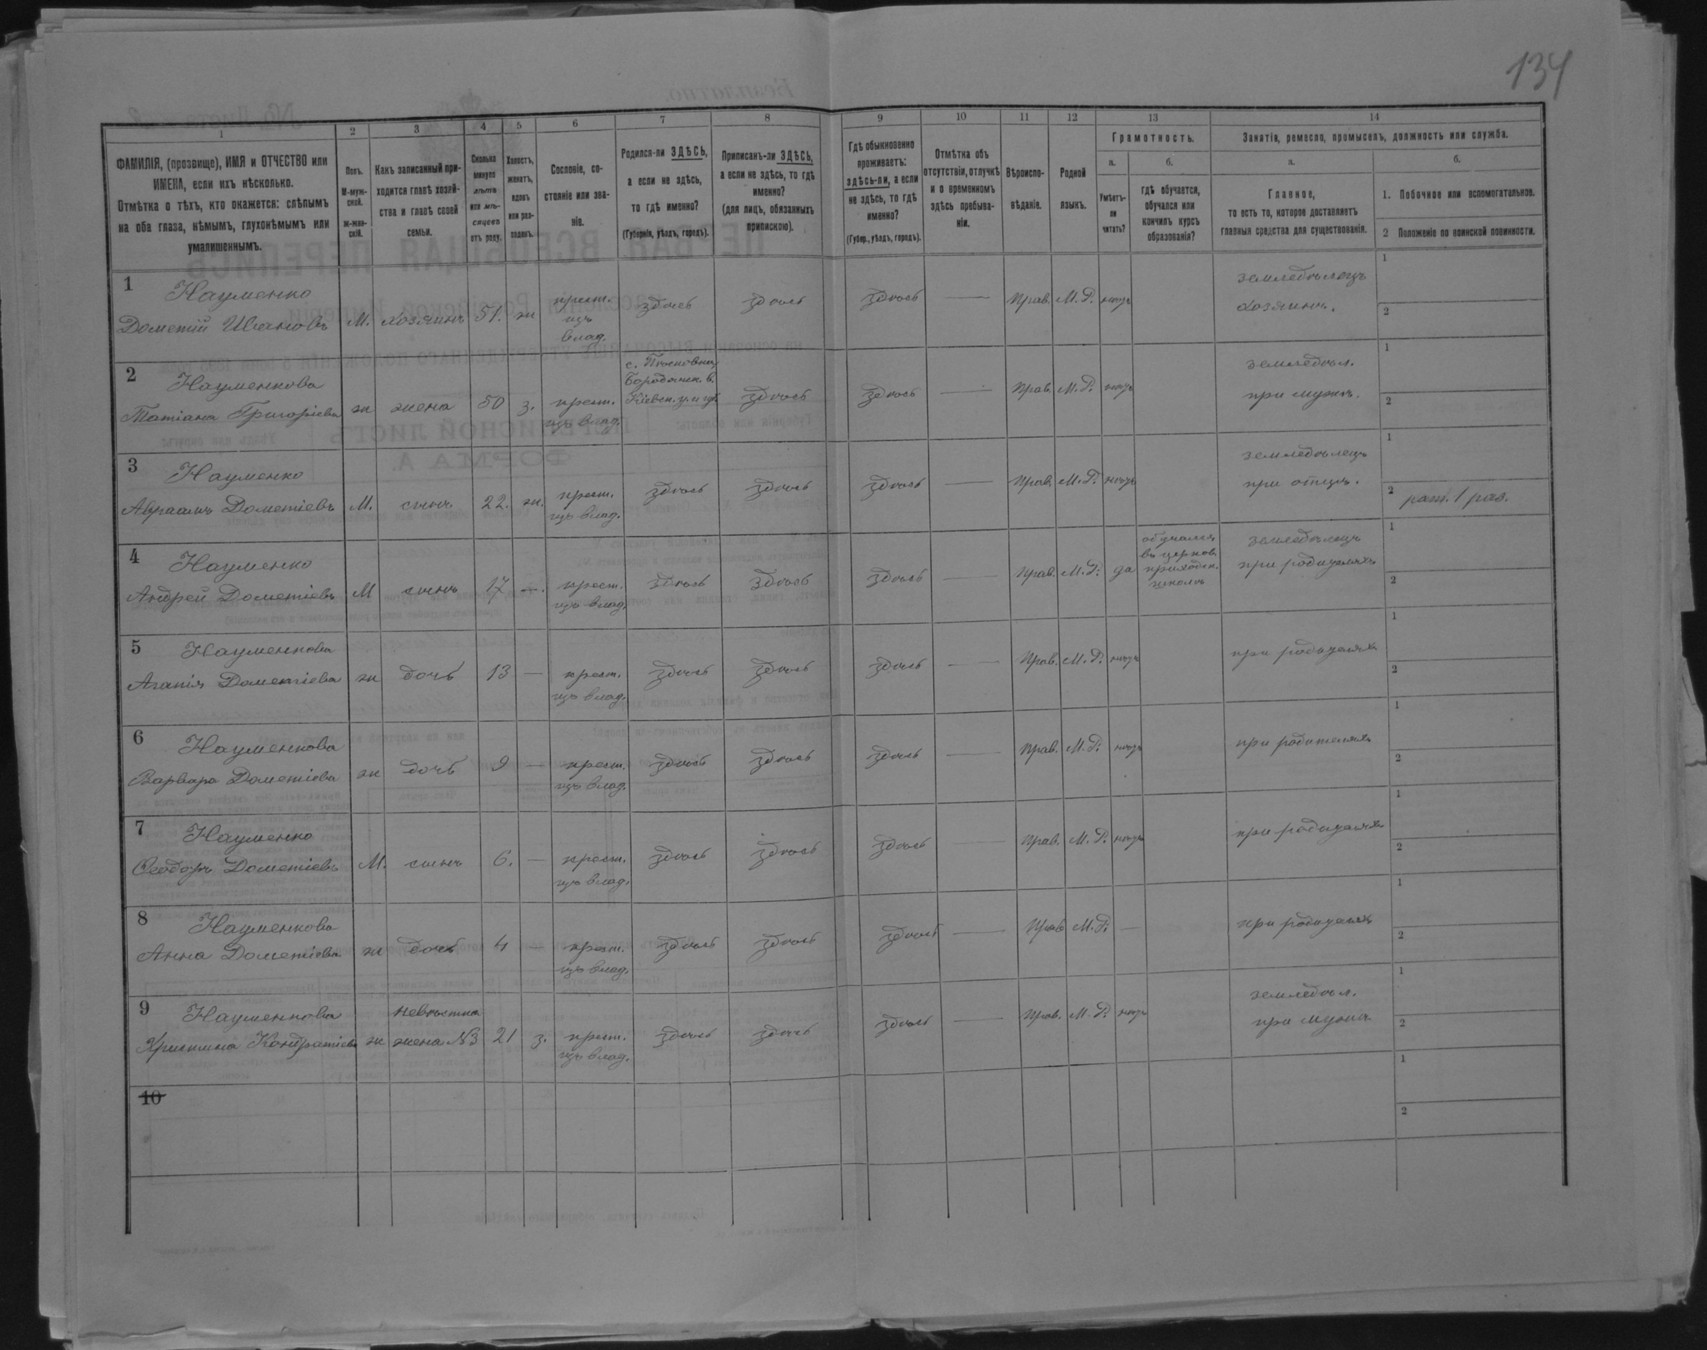 134
1
2
3
4
5
6
7
8
9
10
11
12
13
14
ФАМИЛІЯ, (прозвище), ИМЯ и ОТЧЕСТВО или
ИМЕНА, если ихъ нѣсколько.
Отмѣтка о тѣхъ, кто окажется: слѣпымъ
на оба глаза, нѣмымъ, глухонѣмымъ или
умалишеннымъ.
Полъ.
М-муж-
ской.
ж-жен-
скій.
Какъ записанный при-
ходится главѣ хозяй-
ства и главѣ своей
семьи.
Сколько
минуло
лѣтъ
или мѣ-
сяцевъ
отъ роду.
Холостъ,
женатъ,
вдовъ
или раз-
веденъ.
Сословіе, со-
стояніе или зва-
ніе.
Родился-ли ЗДѢСЬ,
а если не здѣсь,
то гдѣ именно?
(Губернія, уѣздъ, городъ).
Приписанъ-ли ЗДѢСЬ,
а если не здѣсь, то гдѣ
именно?
(для лицъ, обязанныхъ
припискою).
Гдѣ обыкновенно
проживаетъ:
здѣсь-ли, а если
не здѣсь, то гдѣ
именно?
(Губер., уѣздъ, городъ).
Отмѣтка объ
отсутствіи, отлучкѣ
и о временномъ
здѣсь пребыва-
ніи.
Вѣроиспо-
вѣданіе.
Родной
языкъ.
Грамотность.
а.
Умѣетъ-
ли
читать?
б.
гдѣ обучается,
обучался или
кончилъ курсъ
образованія?
Занятія, ремесло, промыселъ, должность или служба.
а.
Главное,
то есть то, которое доставляетъ
главныя средства для существованія.
б.
1. Побочное или вспомогательное.
2 Положеніе по воинской повинности.
1
Науменко
Дометій Ивановъ
М.
хозяинъ
51.
ж
крест.
изъ
влад.
здѣсь
здѣсь
здѣсь
—
Прав.
М.Р.
нѣтъ
земледѣлецъ
хозяинъ.
1
2
2
Науменкова
Татіана Григоріева
ж
жена
50
з.
крест.
изъ влад.
Кіевск. у. и губ.
здѣсь
здѣсь
—
Прав.
М.Р.
нѣтъ
земледѣл.
при мужѣ.
1
2
3
Науменко
Авраамъ Дометіевъ
М.
сынъ
22.
ж.
крест.
изъ влад.
здѣсь
здѣсь
здѣсь
—
Прав.
М.Р.
нѣтъ
земледѣлецъ
при отцѣ.
1
2 рат. 1 раз.
4
Науменко
Андрей Дометіевъ
М
сынъ
17
—
крест.
изъ влад.
здѣсь
здѣсь
здѣсь
—
Прав.
М.Р.
да
обучался
въ церков.
приходск.
школѣ
земледѣлецъ
при родителяхъ
1
2
5
Науменкова
Агапія Дометіева
ж
дочь
13
—
крест.
изъ влад.
здѣсь
здѣсь
здѣсь
—
Прав.
М.Р.
нѣтъ
при родителяхъ
1
2
6
Науменкова
Варвара Дометіева
ж
дочь
9
—
крест.
изъ влад.
здѣсь
здѣсь
здѣсь
—
Прав.
М.Р.
нѣтъ
при родителяхъ
1
2
7
Науменко
Ѳеодоръ Дометіевъ
М.
сынъ
6.
—
крест.
изъ влад.
здѣсь
здѣсь
здѣсь
—
Прав.
М.Р.
нѣтъ
при родителяхъ
1
2
8
Науменкова
Анна Дометіева
ж
дочь
4
—
крест.
изъ влад.
здѣсь
здѣсь
здѣсь
—
Прав
М.Р.
—
при родителяхъ
1
2
9
Науменкова
Христина Кондратіева
ж
невѣстка
жена №3
21
з.
крест.
изъ влад.
здѣсь
здѣсь
здѣсь
—
Прав.
М.Р.
нѣтъ
земледѣл.
при мужѣ
1
2
10
1
2